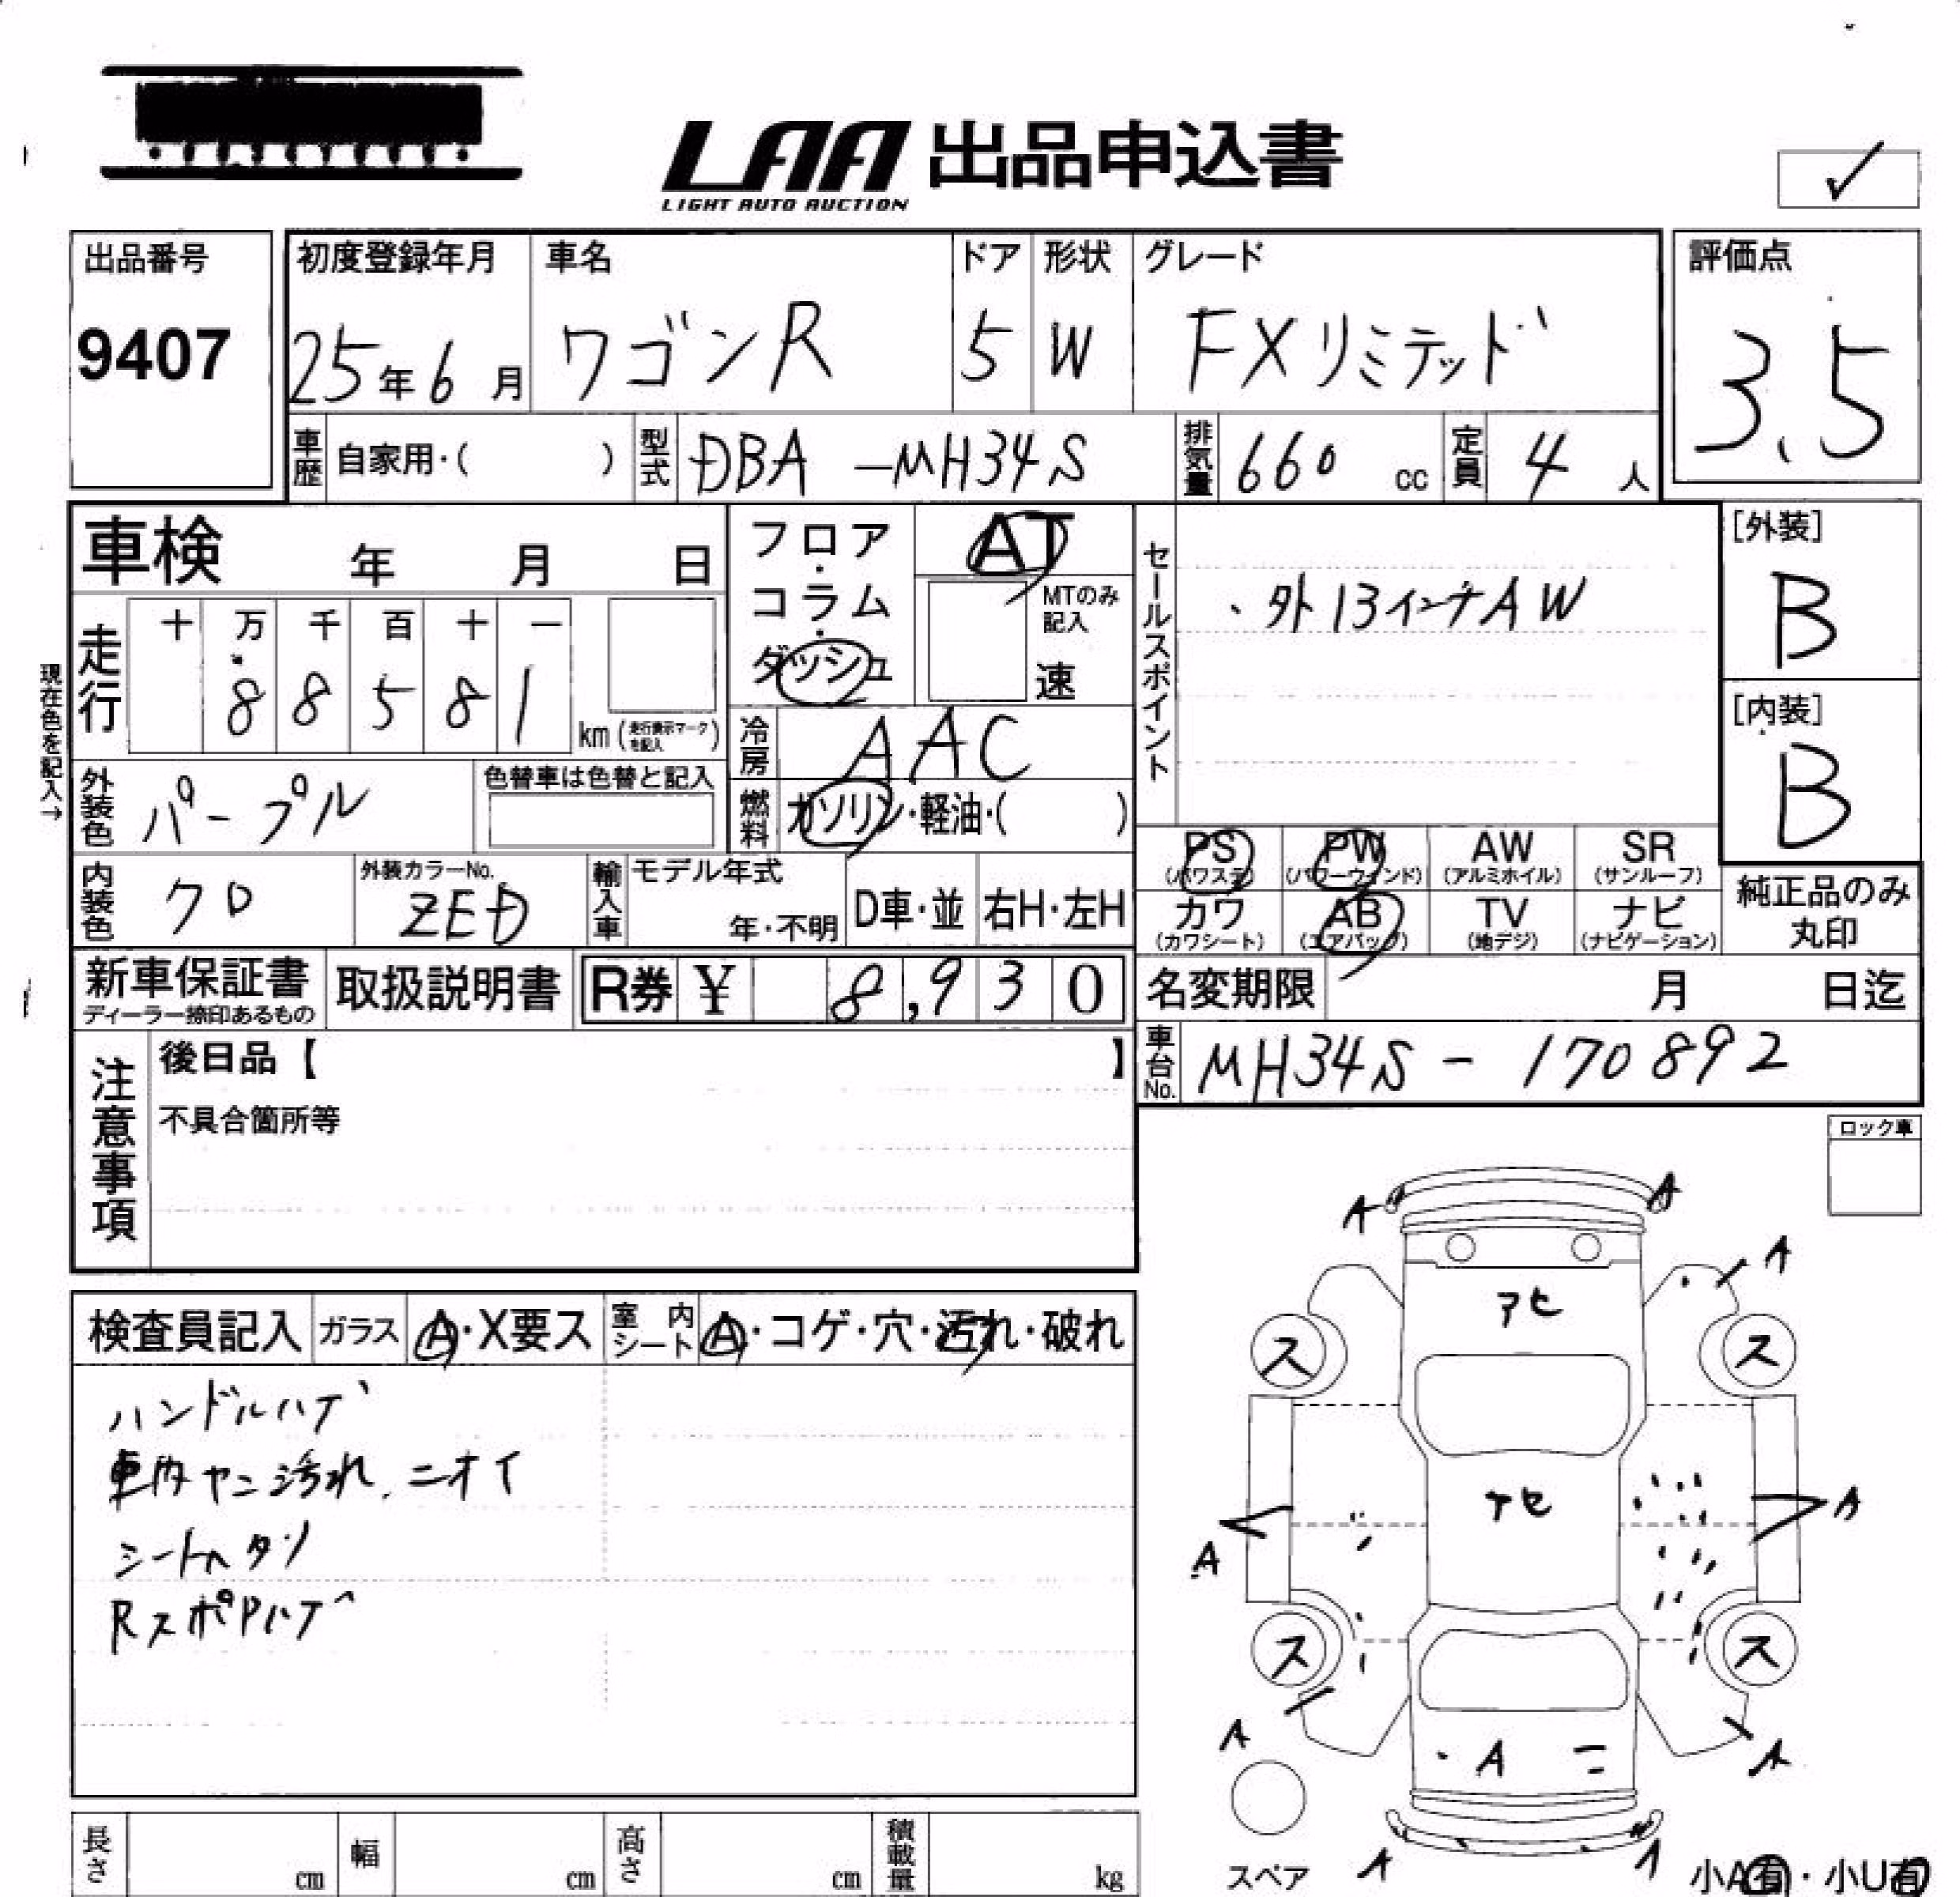 LAA 出品申込書
LIGHT AUTO AUCTION
✓
出品番号
9407
初度登録年月
25年6月
車名
ワゴンR
ドア
5
形状
W
グレード
FXリミテッド
評価点
3.5
車歴 自家用・( )
型式 DBA-MH34S
排気量 660 cc
定員 4人
車検 年 月 日
フロア・コラム・ダッシュ
AT
MTのみ記入
速
セールスポイント
・外13インチAW
[外装]
B
[内装]
B
現在色を記入→
走行
十 万 千 百 十 一
8 8 5 8 1
km(走行表示マークを記入)
冷房 AAC
外装色 パープル
色替車は色替と記入
燃料 ガソリン・軽油・( )
PS (パワステ)
PW (パワーウインド)
AW (アルミホイル)
SR (サンルーフ)
カワ (カワシート)
AB (エアバッグ)
TV (地デジ)
ナビ (ナビゲーション)
純正品のみ
丸印
内装色 クロ
外装カラーNo.
ZED
輸入車
モデル年式
年・不明
D車・並
右H・左H
新車保証書
ディーラー捺印あるもの
取扱説明書
R券 ¥ 8,930
名変期限 月 日迄
車台No. MH34S-170892
注意事項
後日品【 】
不具合箇所等
ロック車
検査員記入
ガラス A・X要ス
室内シート A・コゲ・穴・汚れ・破れ
ハンドルハゲ
車内ヤニ汚れ、ニオイ
シートヘタリ
RスポPハゲ
A A
A
アセ
ス ス
アセ
A A
ス ス
A A A
A A
スペア
小A有・小U有
長さ cm
幅 cm
高さ cm
積載量 kg